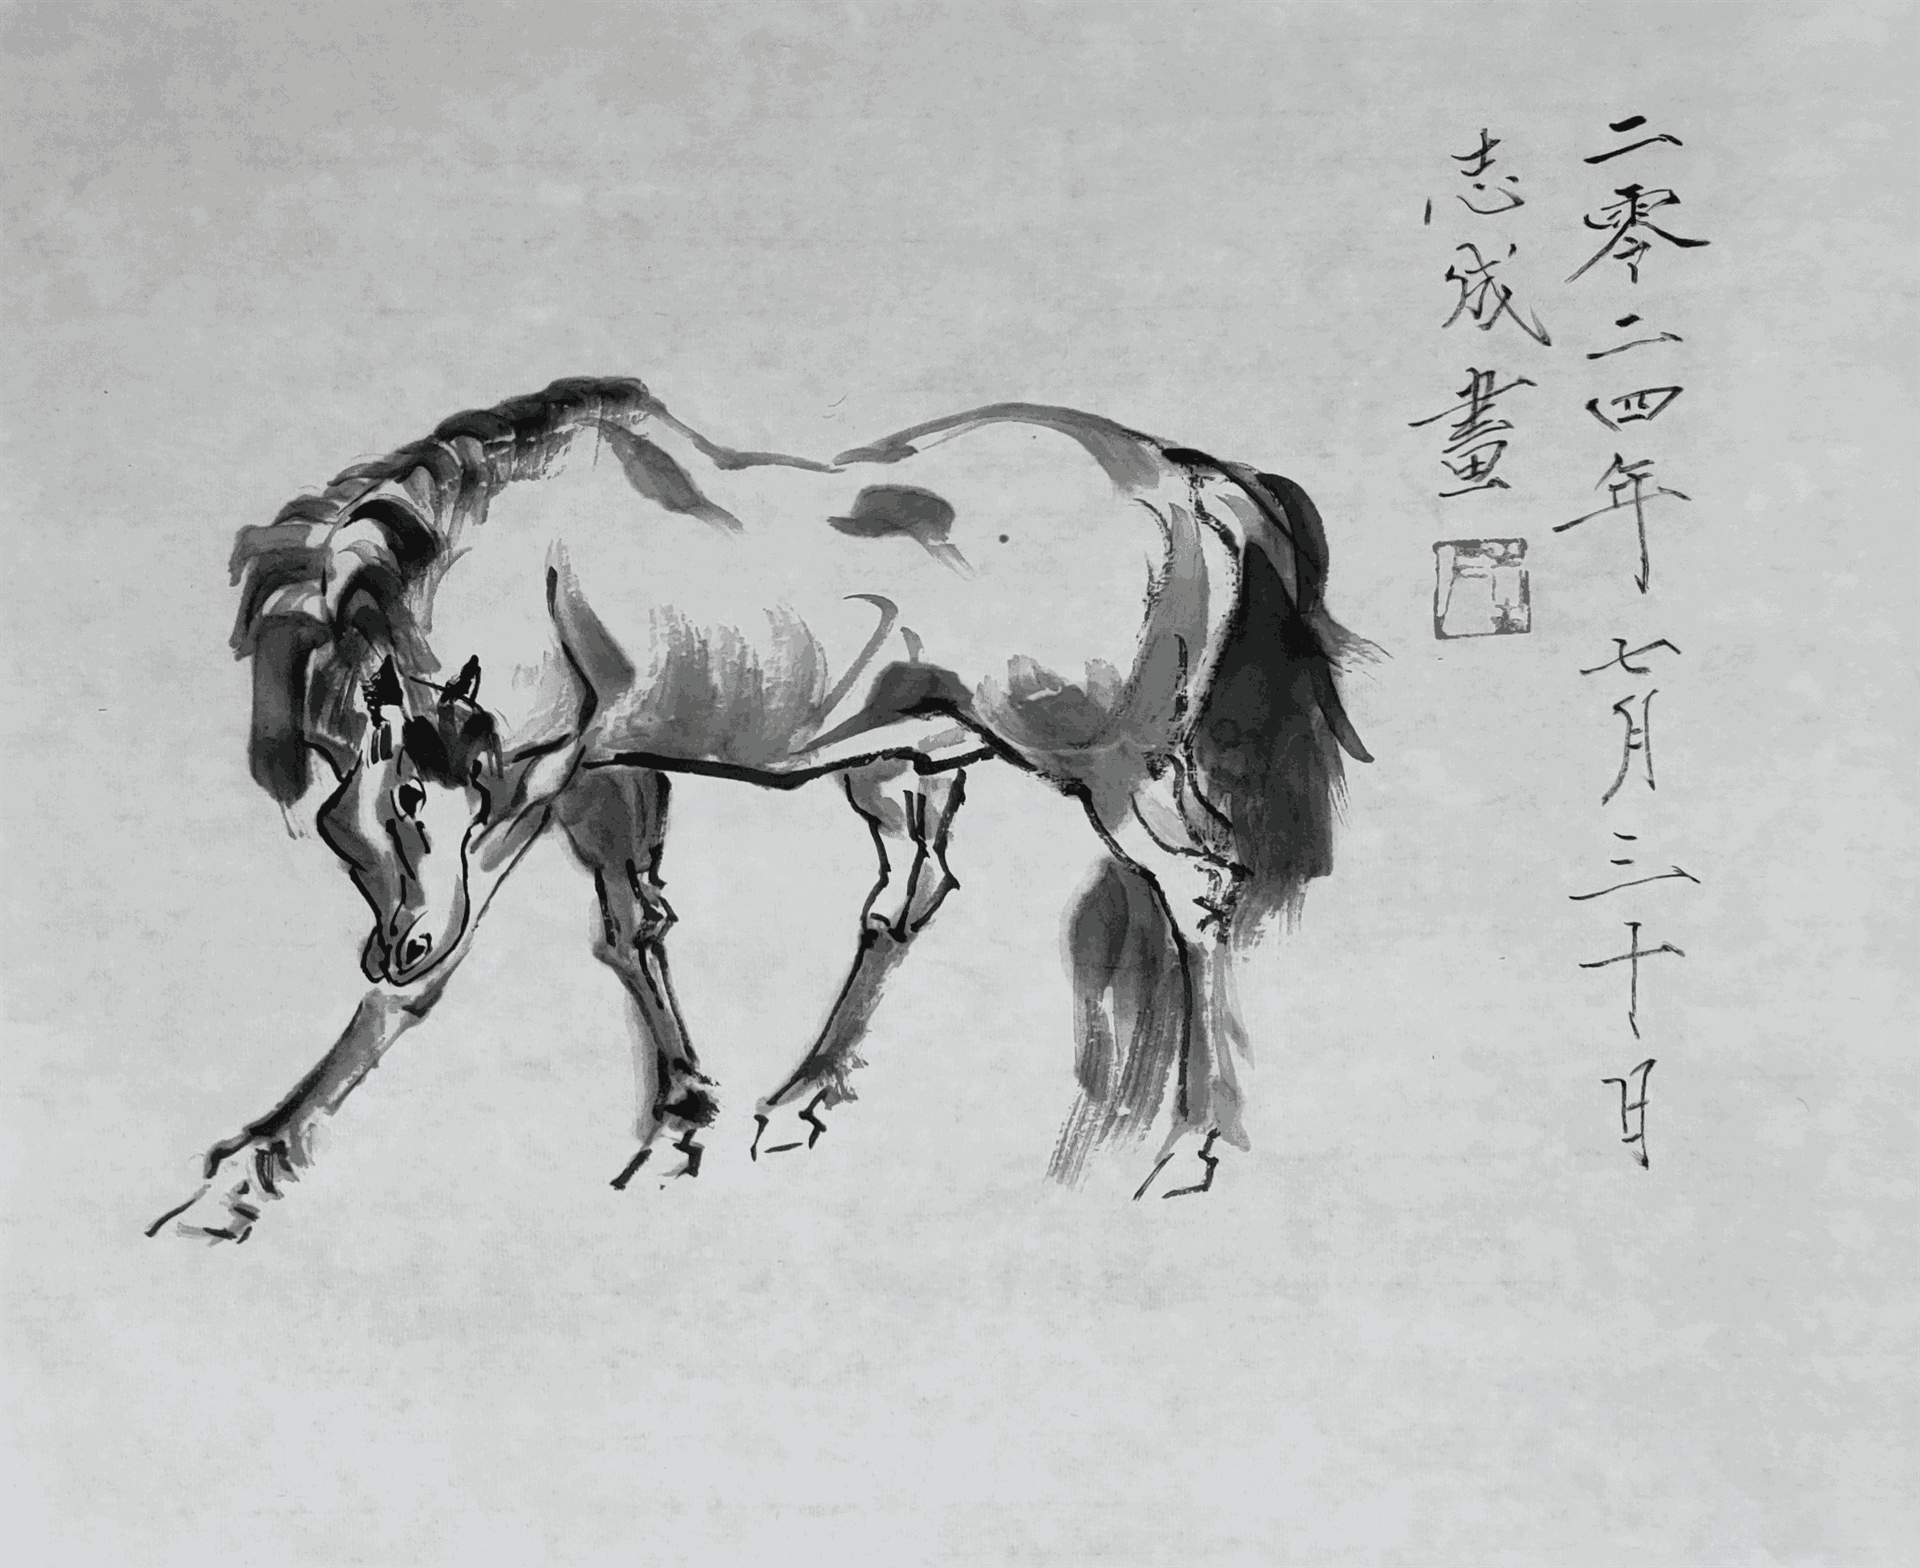 二零二四年七月三十日
志成畫